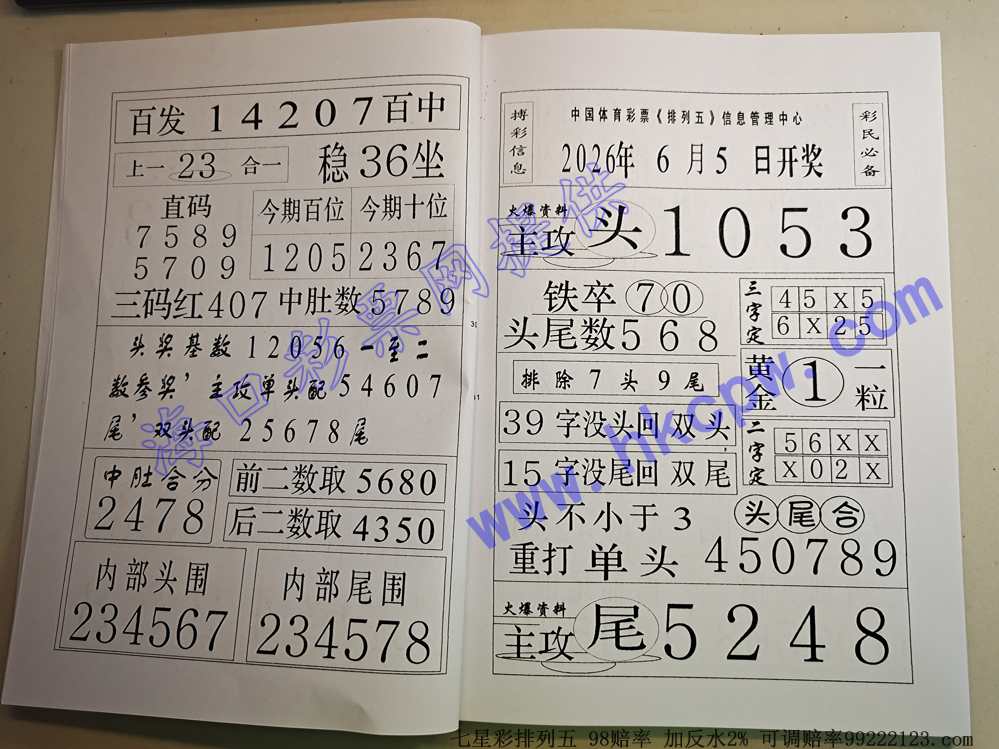 百发 14207 百中
上一 23 合一 稳 36 坐
直码
7589
5709
今期百位 今期十位
1205 2367
三码红 407 中肚数 5789
头奖基数 12056 一至二
数参奖’主攻单头配 54607
尾’双头配 25678 尾
中肚合分
2478
前二数取 5680
后二数取 4350
内部头围
234567
内部尾围
234578
搏彩信息
中国体育彩票《排列五》信息管理中心
2026年 6 月 5 日开奖
彩民必备
火爆资料
主攻 头 1053
铁卒 70
头尾数 568
三字定
45X5
6X25
排除 7 头 9 尾
黄金 1 一粒
39 字没头回 双 头
15 字没尾回 双 尾
二字定
56XX
X02X
头 不 小 于 3 头 尾 合
重打 单 头 450789
火爆资料
主攻 尾 5248
海口彩票网提供
www.hkcpw.com
七星彩排列五 98赔率 加反水2% 可调赔率99222123.com